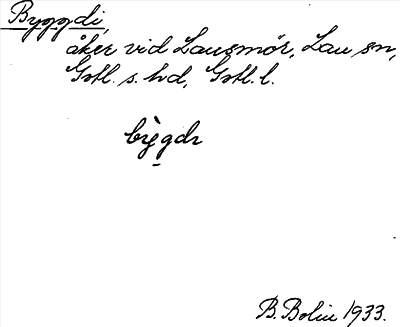 Byggdi,
åker vid Lausmör, Lau sn,
Gotl. s. hd, Gotl. l.
B. Bolin 1933.